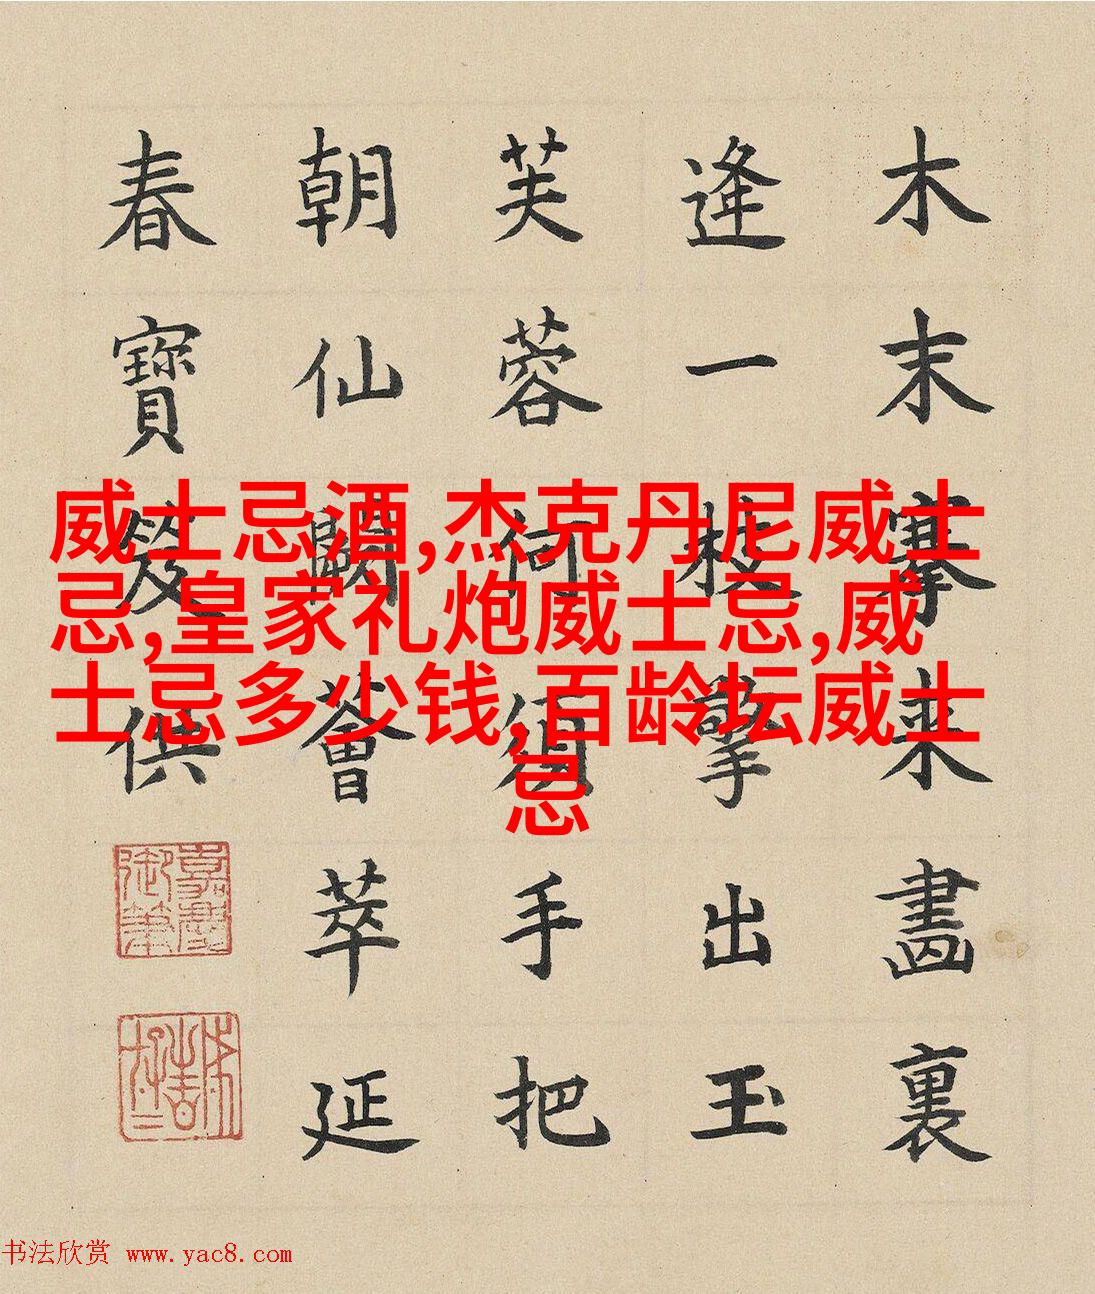 木末搴来畫裏
逢一枝擎出玉
芙蓉何須手把
朝仙闕薈萃延
春寶笈供
嘉慶御筆
威士忌酒,杰克丹尼威士
忌,皇家礼炮威士忌,威
士忌多少钱,百龄坛威士
忌
书法欣赏 www.yac8.com